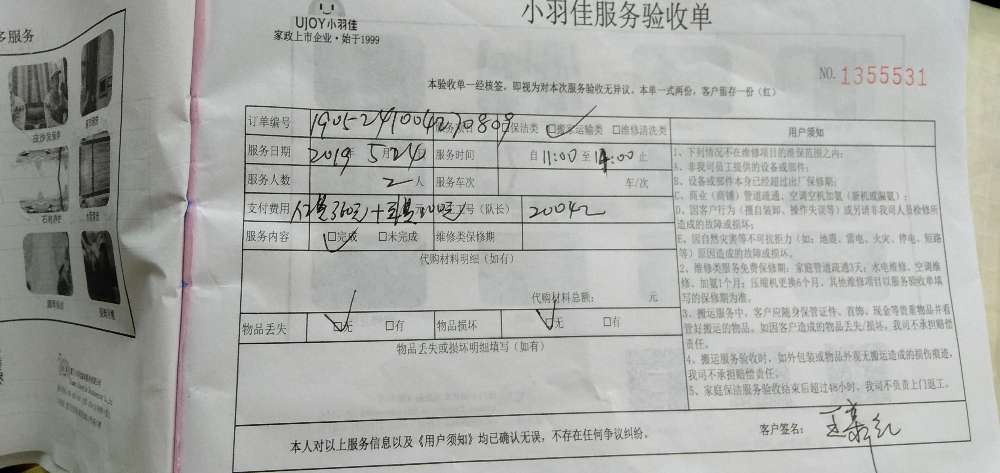 多服务
UJOY小羽佳
家政上市企业·始于1999
小羽佳服务验收单
NO. 1355531
本验收单一经核签，即视为对本次服务验收无异议。本单一式两份，客户留存一份（红）
订单编号 1905241004270809 □保洁类 □搬家运输类 □维修清洗类
服务日期 2019年5月24日 服务时间 自11:00至14:00止
服务人数 2人 服务车次 车/次
支付费用 号（队长） 20042
服务内容 □完成 □未完成 维修类保修期
代购材料明细（如有）
代购材料总额： 元
物品丢失 □无 □有 物品损坏 □无 □有
物品丢失或损坏明细填写（如有）
用户须知
1、下列情况不在维修项目的维保范围之内：
A、非我司员工提供的设备或部件；
B、设备或部件本身已经超过出厂保修期；
C、商业（商铺）管道疏通、空调空机加氟（新机或漏氟）；
D、因客户行为（擅自装卸、操作失误等）或另请非我司人员检修所
造成的故障或损坏。
E、因自然灾害等不可抗拒力（如：地震、雷电、火灾、停电、短路
等）原因造成的故障或损坏。
2、维修类服务免费保修期：家庭管道疏通3天；水电维修、空调维
修、加氟1个月；压缩机更换6个月。其他维修项目以服务验收单填
写的保修期为准。
3、搬运服务中，客户应随身保管证件、首饰、现金等贵重物品并看
管好搬运的物品。如因客户造成的物品丢失/损坏，我司不承担赔偿
责任。
4、搬运服务验收时，如外包装或物品外观无搬运造成的损伤痕迹，
我司不承担赔偿责任。
5、家庭保洁服务验收结束后超过48小时，我司不负责上门返工。
本人对以上服务信息以及《用户须知》均已确认无误，不存在任何争议纠纷。
客户签名：